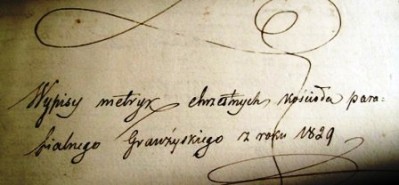 Wypisy metryk chrzestnych kościoła para-
fialnego Graużyskiego z roku 1829